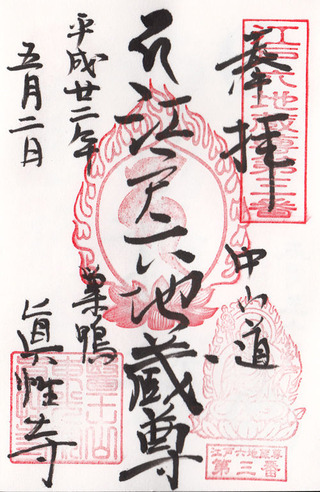 奉拝
江戸六地蔵尊第三番
中山道
江戸六地蔵尊
平成廿二年
五月二日
巣鴨
眞性寺
江戸六地蔵尊
第三番